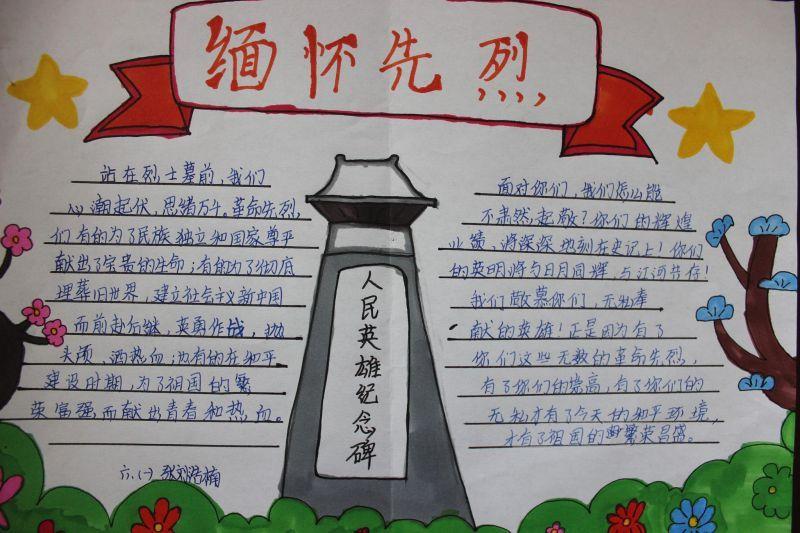 缅怀先烈
站在烈士墓前，我们
心潮起伏，思绪万千。革命先烈，
们有的为了民族独立和国家尊严
献出了宝贵的生命；有的为了彻底
埋葬旧世界，建立社会主义新中国
而前赴后继，英勇作战，抛
头颅、洒热血；也有的在和平
建设时期，为了祖国的繁
荣富强而献出青春和热血。
六.(一) 张刘浩楠
人民英雄纪念碑
面对你们，我们怎么能
不肃然起敬？你们的辉煌
业绩，将深深地刻在史记上！你们
的英明将与日月同辉，与江河共存！
我们敬慕你们，无私奉
献的英雄！正是因为有了
你们这些无数的革命先烈，
有了你们的崇高，有了你们的
无私才有了今天的和平环境，
才有了祖国的繁荣昌盛。